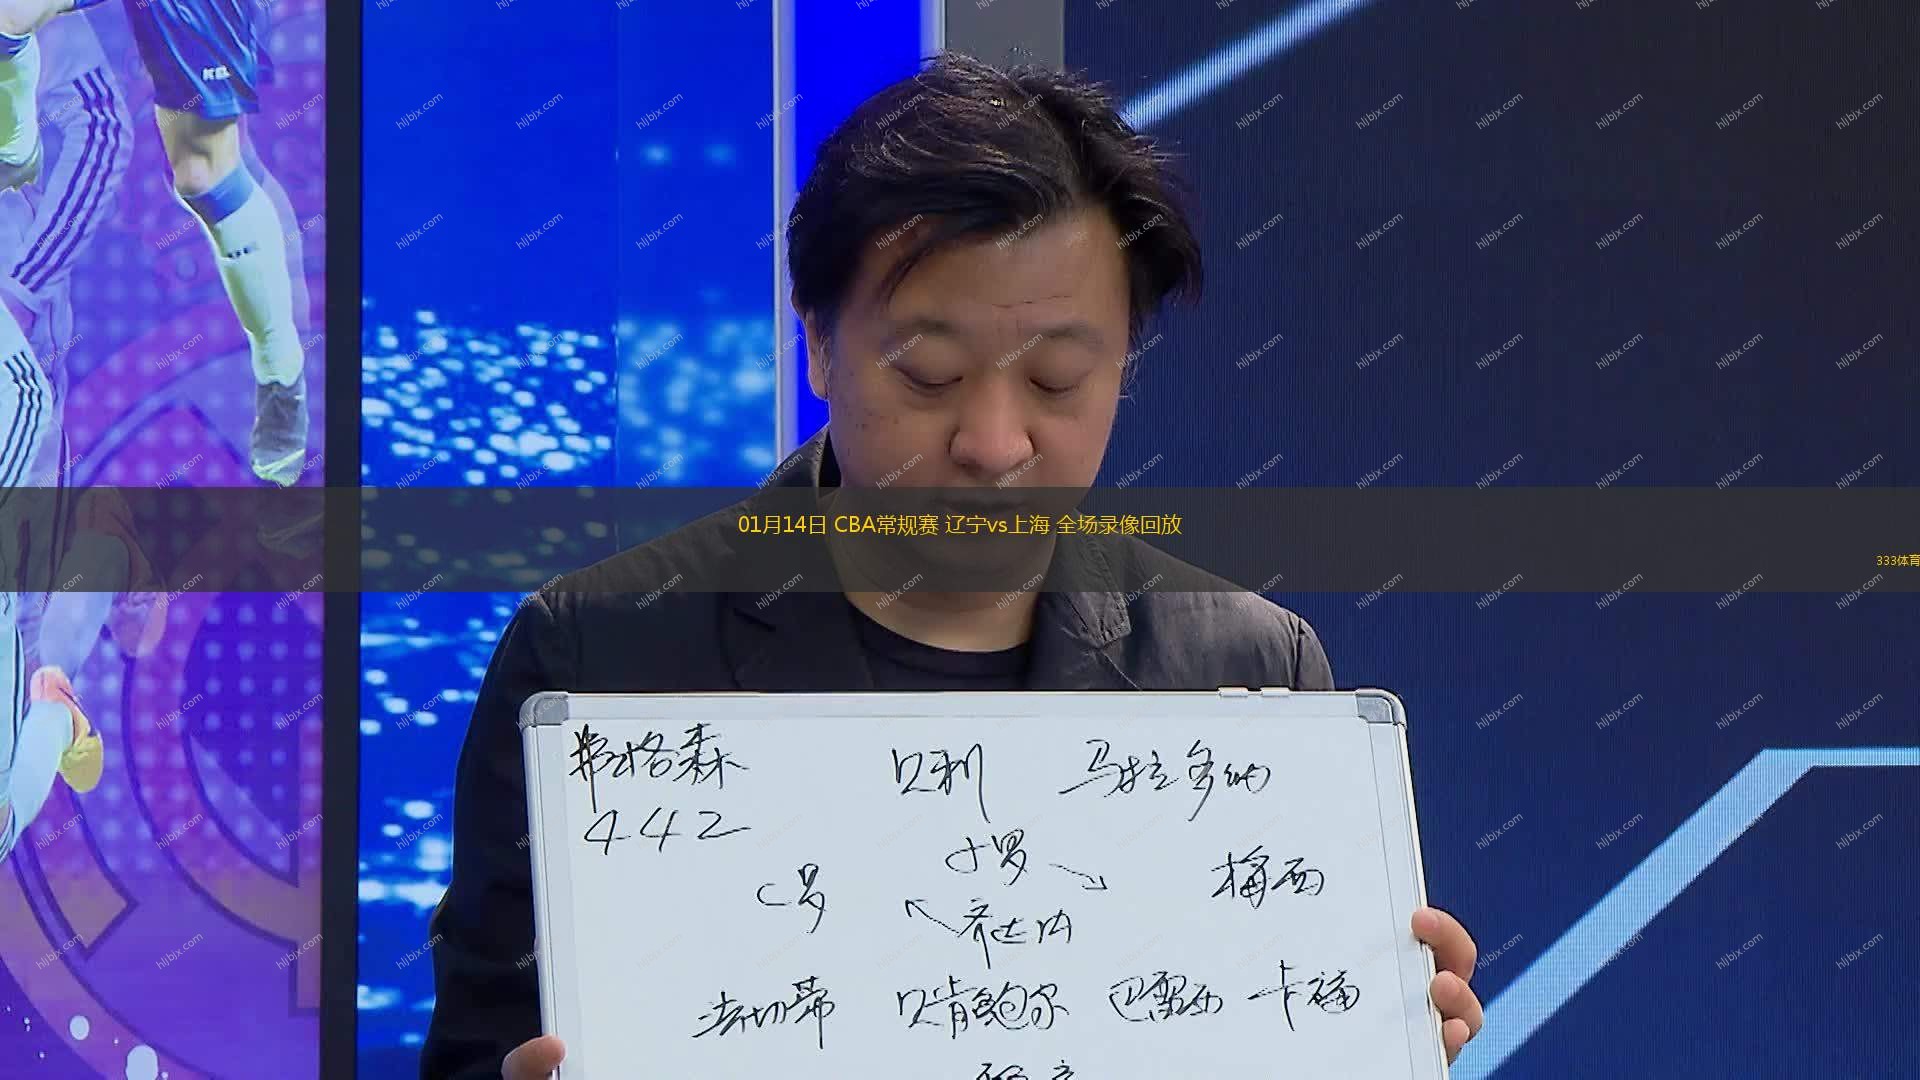 01月14日 CBA常规赛 辽宁vs上海 全场录像回放
333体育
hljbjx.com
KEL
弗格森
贝利 马拉多纳
442
小罗
C罗 梅西
齐达内
法切蒂 贝肯鲍尔 巴雷西 卡福